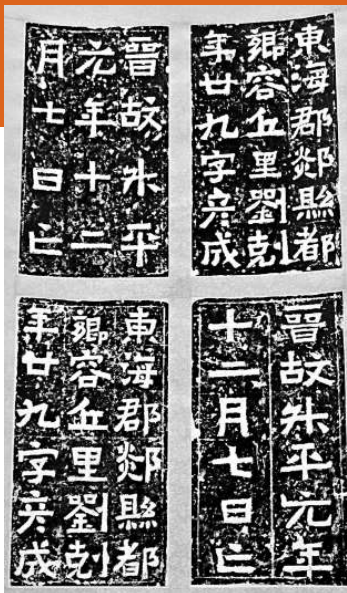 東海郡郯縣都
鄉容丘里劉剋
年廿九字彥成
晉故升平
元年十二
月七日亡
晉故升平元年
十二月七日亡
東海郡郯縣都
鄉容丘里劉剋
年廿九字彥成